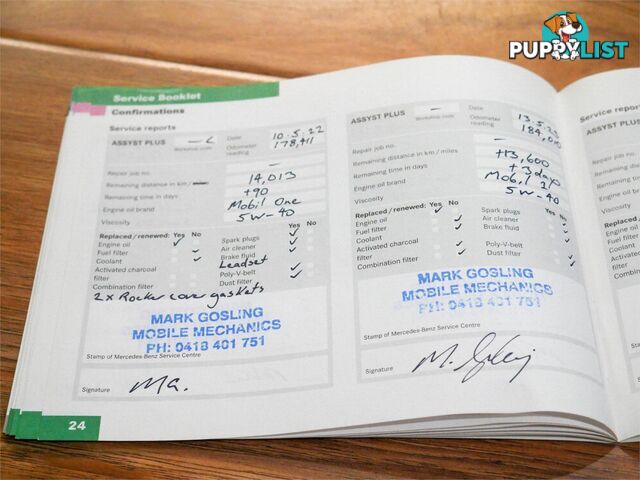 PUPPYLIST
Service Booklet
Confirmations
Service reports
ASSYST PLUS
Workshop code
Date 10.5.22
Odometer reading 178,411
Repair job no. —
Remaining distance in km / 14,013
Remaining time in days +90
Engine oil brand Mobil One
Viscosity 5W-40
Replaced/renewed: Yes No
Yes No
Engine oil ✓
Spark plugs ✓
Fuel filter
Air cleaner ✓
Coolant
Brake fluid
Leadset
Activated charcoal filter
Poly-V-belt
Combination filter
Dust filter
2 x Rocker cover gaskets
MARK GOSLING
MOBILE MECHANICS
PH: 0418 401 751
Stamp of Mercedes-Benz Service Centre
Signature
24
ASSYST PLUS —
Workshop code
Date
Odometer reading
Repair job no. —
Remaining distance in km / miles +13,600
Remaining time in days +3 days
Engine oil brand Mobil 1
Viscosity 5W-40
Replaced/renewed: Yes No
Yes No
Engine oil ✓
Spark plugs
Fuel filter
Air cleaner
Coolant
Brake fluid
Activated charcoal filter
Poly-V-belt
Combination filter
Dust filter
MARK GOSLING
MOBILE MECHANICS
PH: 0418 401 751
Stamp of Mercedes-Benz Service Centre
Signature
Service repor
ASSYST PLU
Repair job no.
Remaining dis
Remaining tim
Engine oil bra
Viscosity
Replaced/re
Engine oil
Fuel filter
Coolant
Activated
filter
Combinat